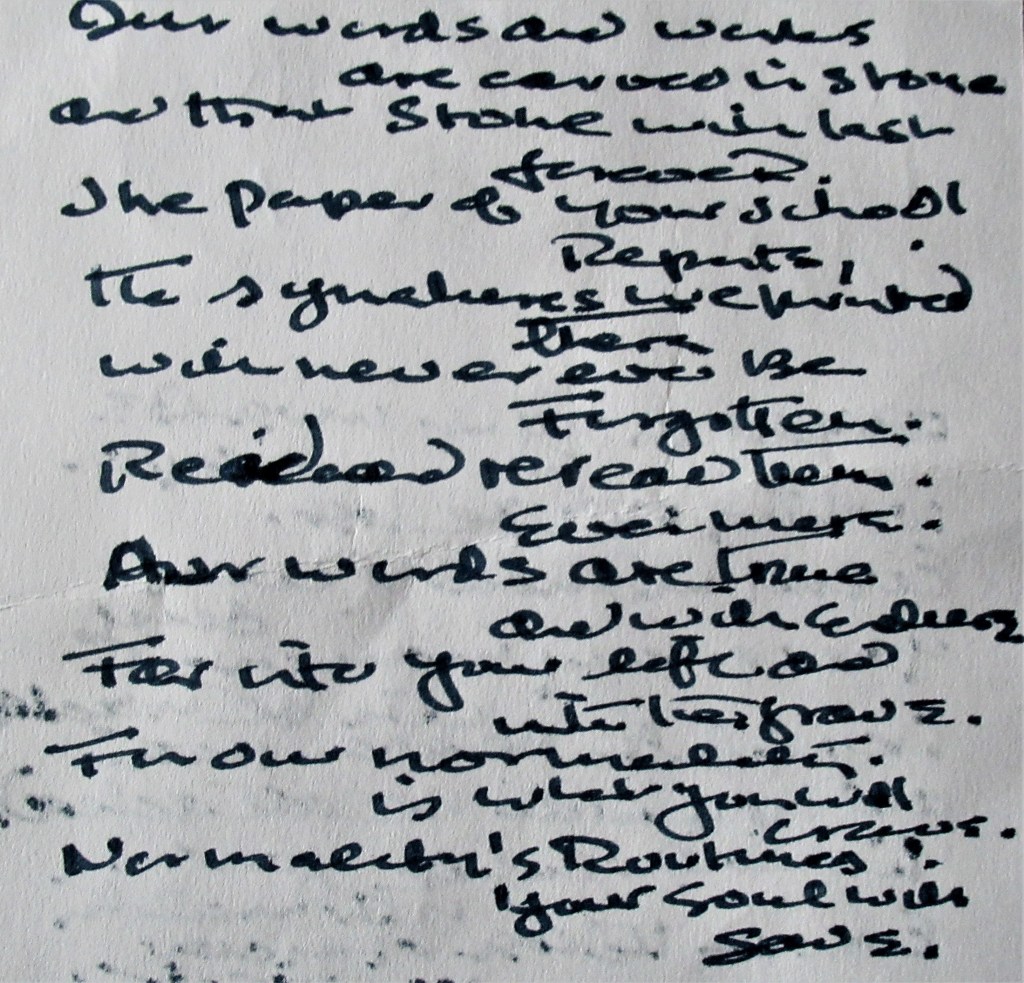 Our words and works
are carved in stone
and that Stone will last
forever.
The paper of your school
Reports,
the signatures we printed
there
will never ever Be
Forgotten.
Read and reread them.
Evermore.
Our words are True
and will Endure
Far into your life and
into the grave.
For our normality.
is what you will
crave.
Normality's Routines
your soul will
save.